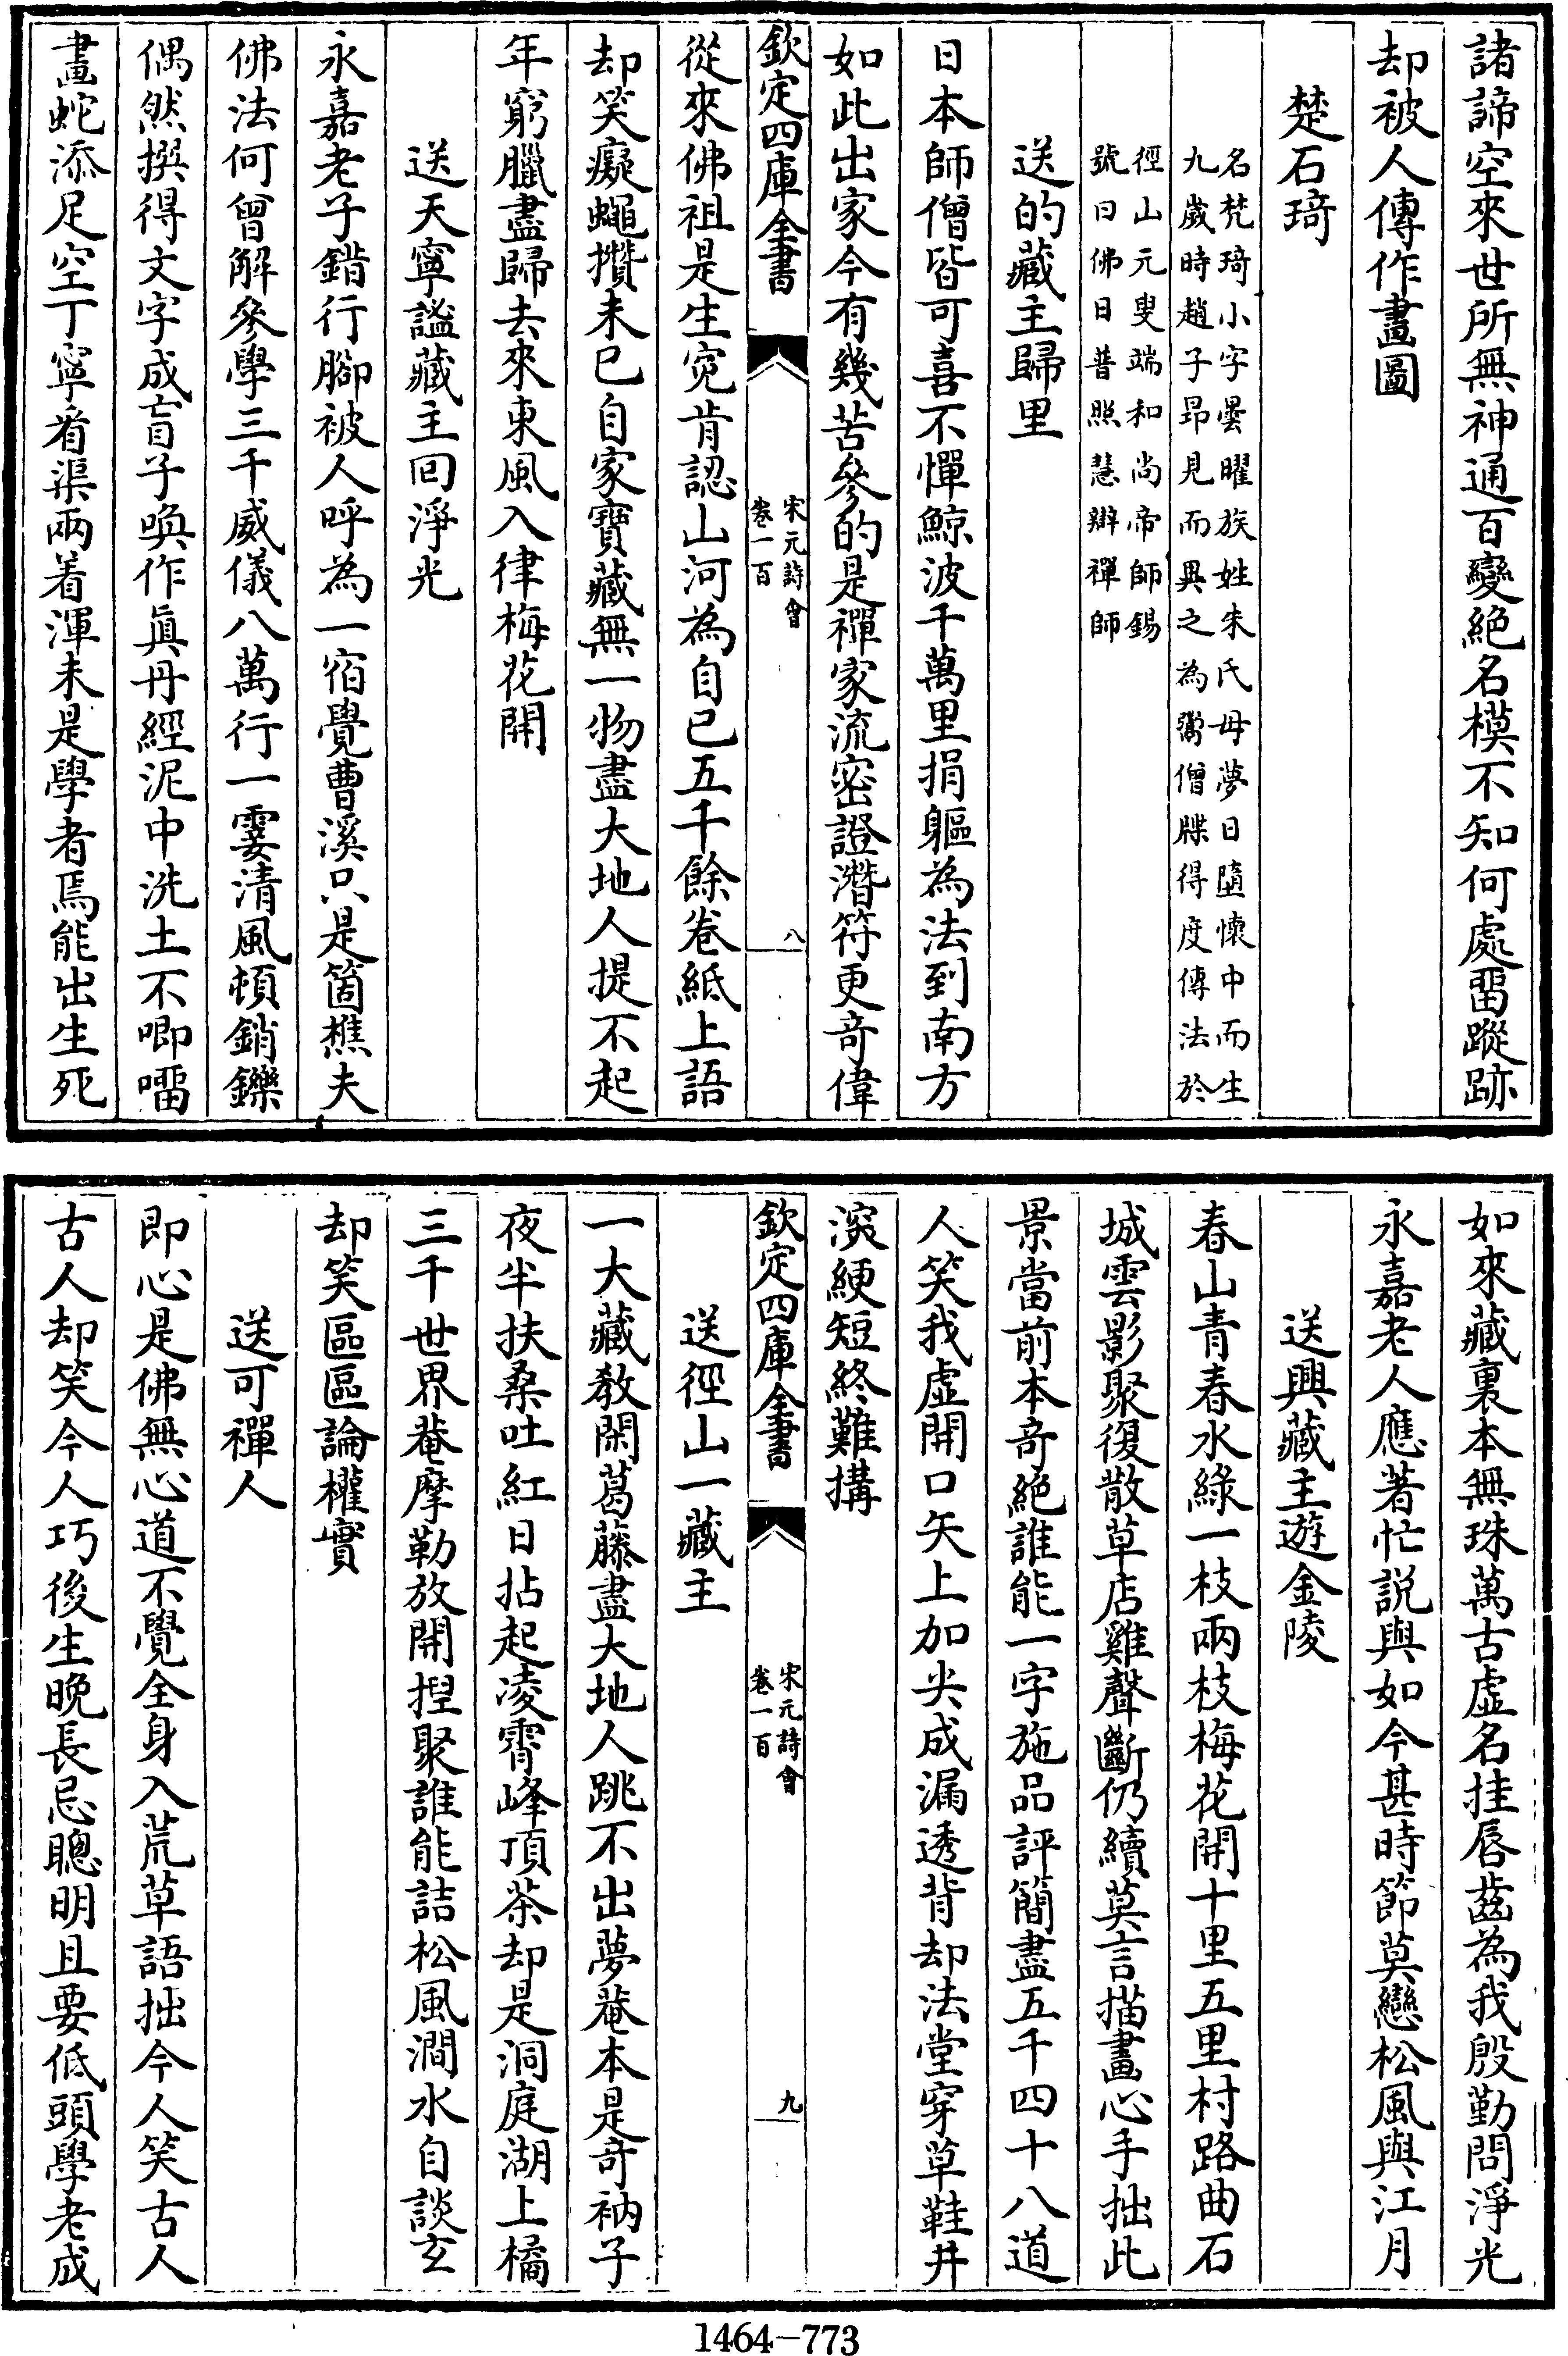 諸諦空來世所無神通百變絶名模不知何處畱蹤跡
却被人傳作畫圖
楚石琦
名梵琦小字曇曜族姓朱氏母夢日墮懷中而生
九歲時趙子昂見而異之為鬻僧牒得度傳法於
徑山元叟端和尚帝師錫
號曰佛日普照慧辯禪師
送的藏主歸里
日本師僧皆可喜不憚鯨波千萬里捐軀為法到南方
如此出家今有幾苦參的是禪家流密證潛符更奇偉
欽定四庫全書
宋元詩會
卷一百
八
從來佛祖是生寃肯認山河為自己五千餘卷紙上語
却笑癡蠅攢未已自家寶藏無一物盡大地人提不起
年窮臘盡歸去來東風入律梅花開
送天寧謐藏主回淨光
永嘉老子錯行腳被人呼為一宿覺曹溪只是箇樵夫
佛法何曾解參學三千威儀八萬行一霎清風頓銷鑠
偶然撰得文字成盲子喚作真丹經泥中洗土不唧㗲
畫蛇添足空丁寧看渠兩着渾未是學者焉能出生死
如來藏裏本無珠萬古虛名挂唇齒為我殷勤問淨光
永嘉老人應著忙説與如今甚時節莫戀松風與江月
送興藏主遊金陵
春山青春水綠一枝兩枝梅花開十里五里村路曲石
城雲影聚復散草店雞聲斷仍續莫言描畫心手拙此
景當前本奇絕誰能一字施品評簡盡五千四十八道
人笑我虛開口矢上加尖成漏透背却法堂穿草鞋井
深綆短終難搆
欽定四庫全書
宋元詩會
卷一百
九
送徑山一藏主
一大藏教閑葛藤盡大地人跳不出夢菴本是奇衲子
夜半扶桑吐紅日拈起凌霄峰頂茶却是洞庭湖上橘
三千世界菴摩勒放開揑聚誰能詰松風澗水自談玄
却笑區區論權實
送可禪人
即心是佛無心道不覺全身入荒草語拙今人笑古人
古人却笑今人巧後生晚長忌聰明且要低頭學老成
1464-773